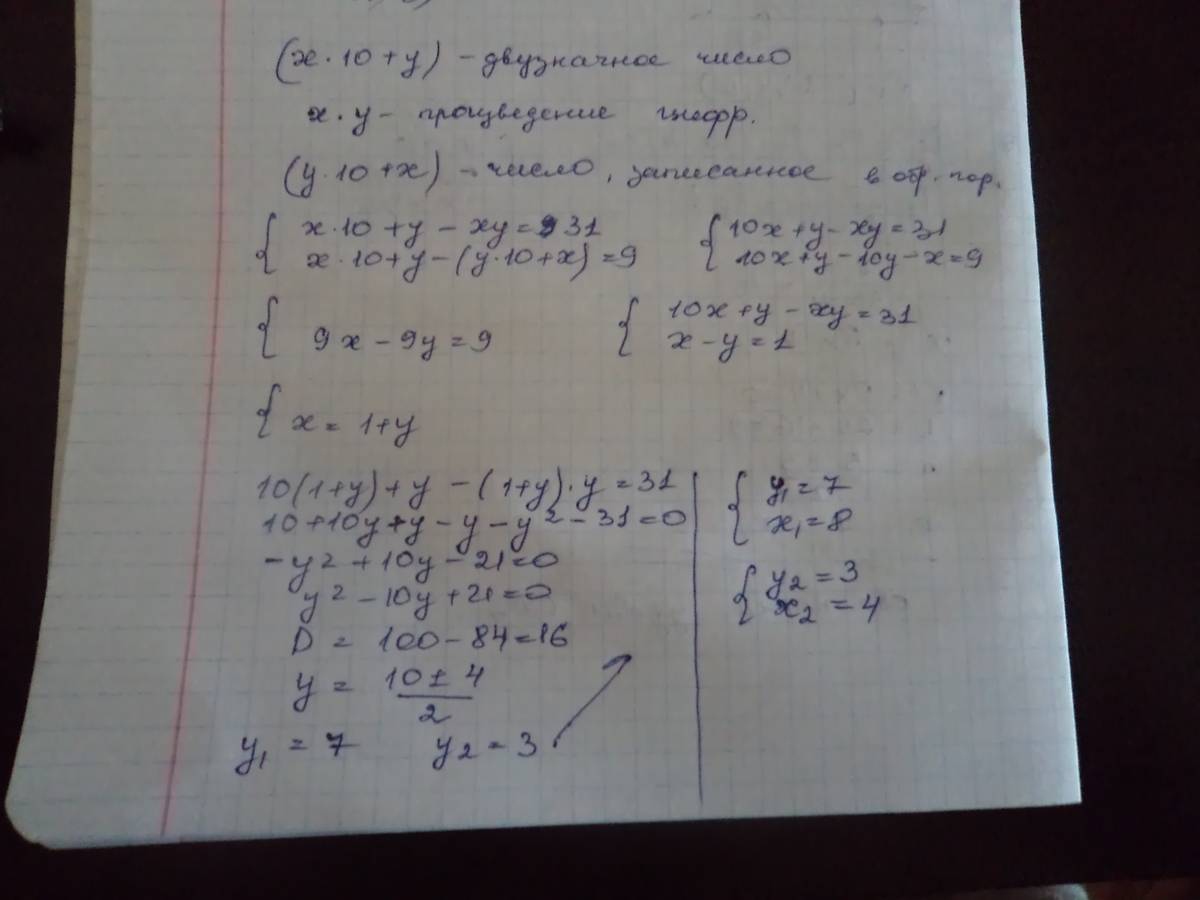 (x·10+y) – двузначное число
x·y – произведение цифр.
(y·10+x) – число, записанное в обр. пор.
{ x·10+y – xy = 31
x·10+y – (y·10+x) = 9
{ 10x+y – xy = 31
10x+y – 10y – x = 9
{ 9x – 9y = 9
{ 10x+y – xy = 31
x – y = 1
{ x = 1+y
10(1+y)+y – (1+y)·y = 31
10+10y+y – y – y² – 31 = 0
–y² + 10y – 21 = 0
y² – 10y + 21 = 0
D = 100 – 84 = 16
y = (10 ± 4)/2
y₁ = 7 y₂ = 3
{ y₁ = 7
x₁ = 8
{ y₂ = 3
x₂ = 4